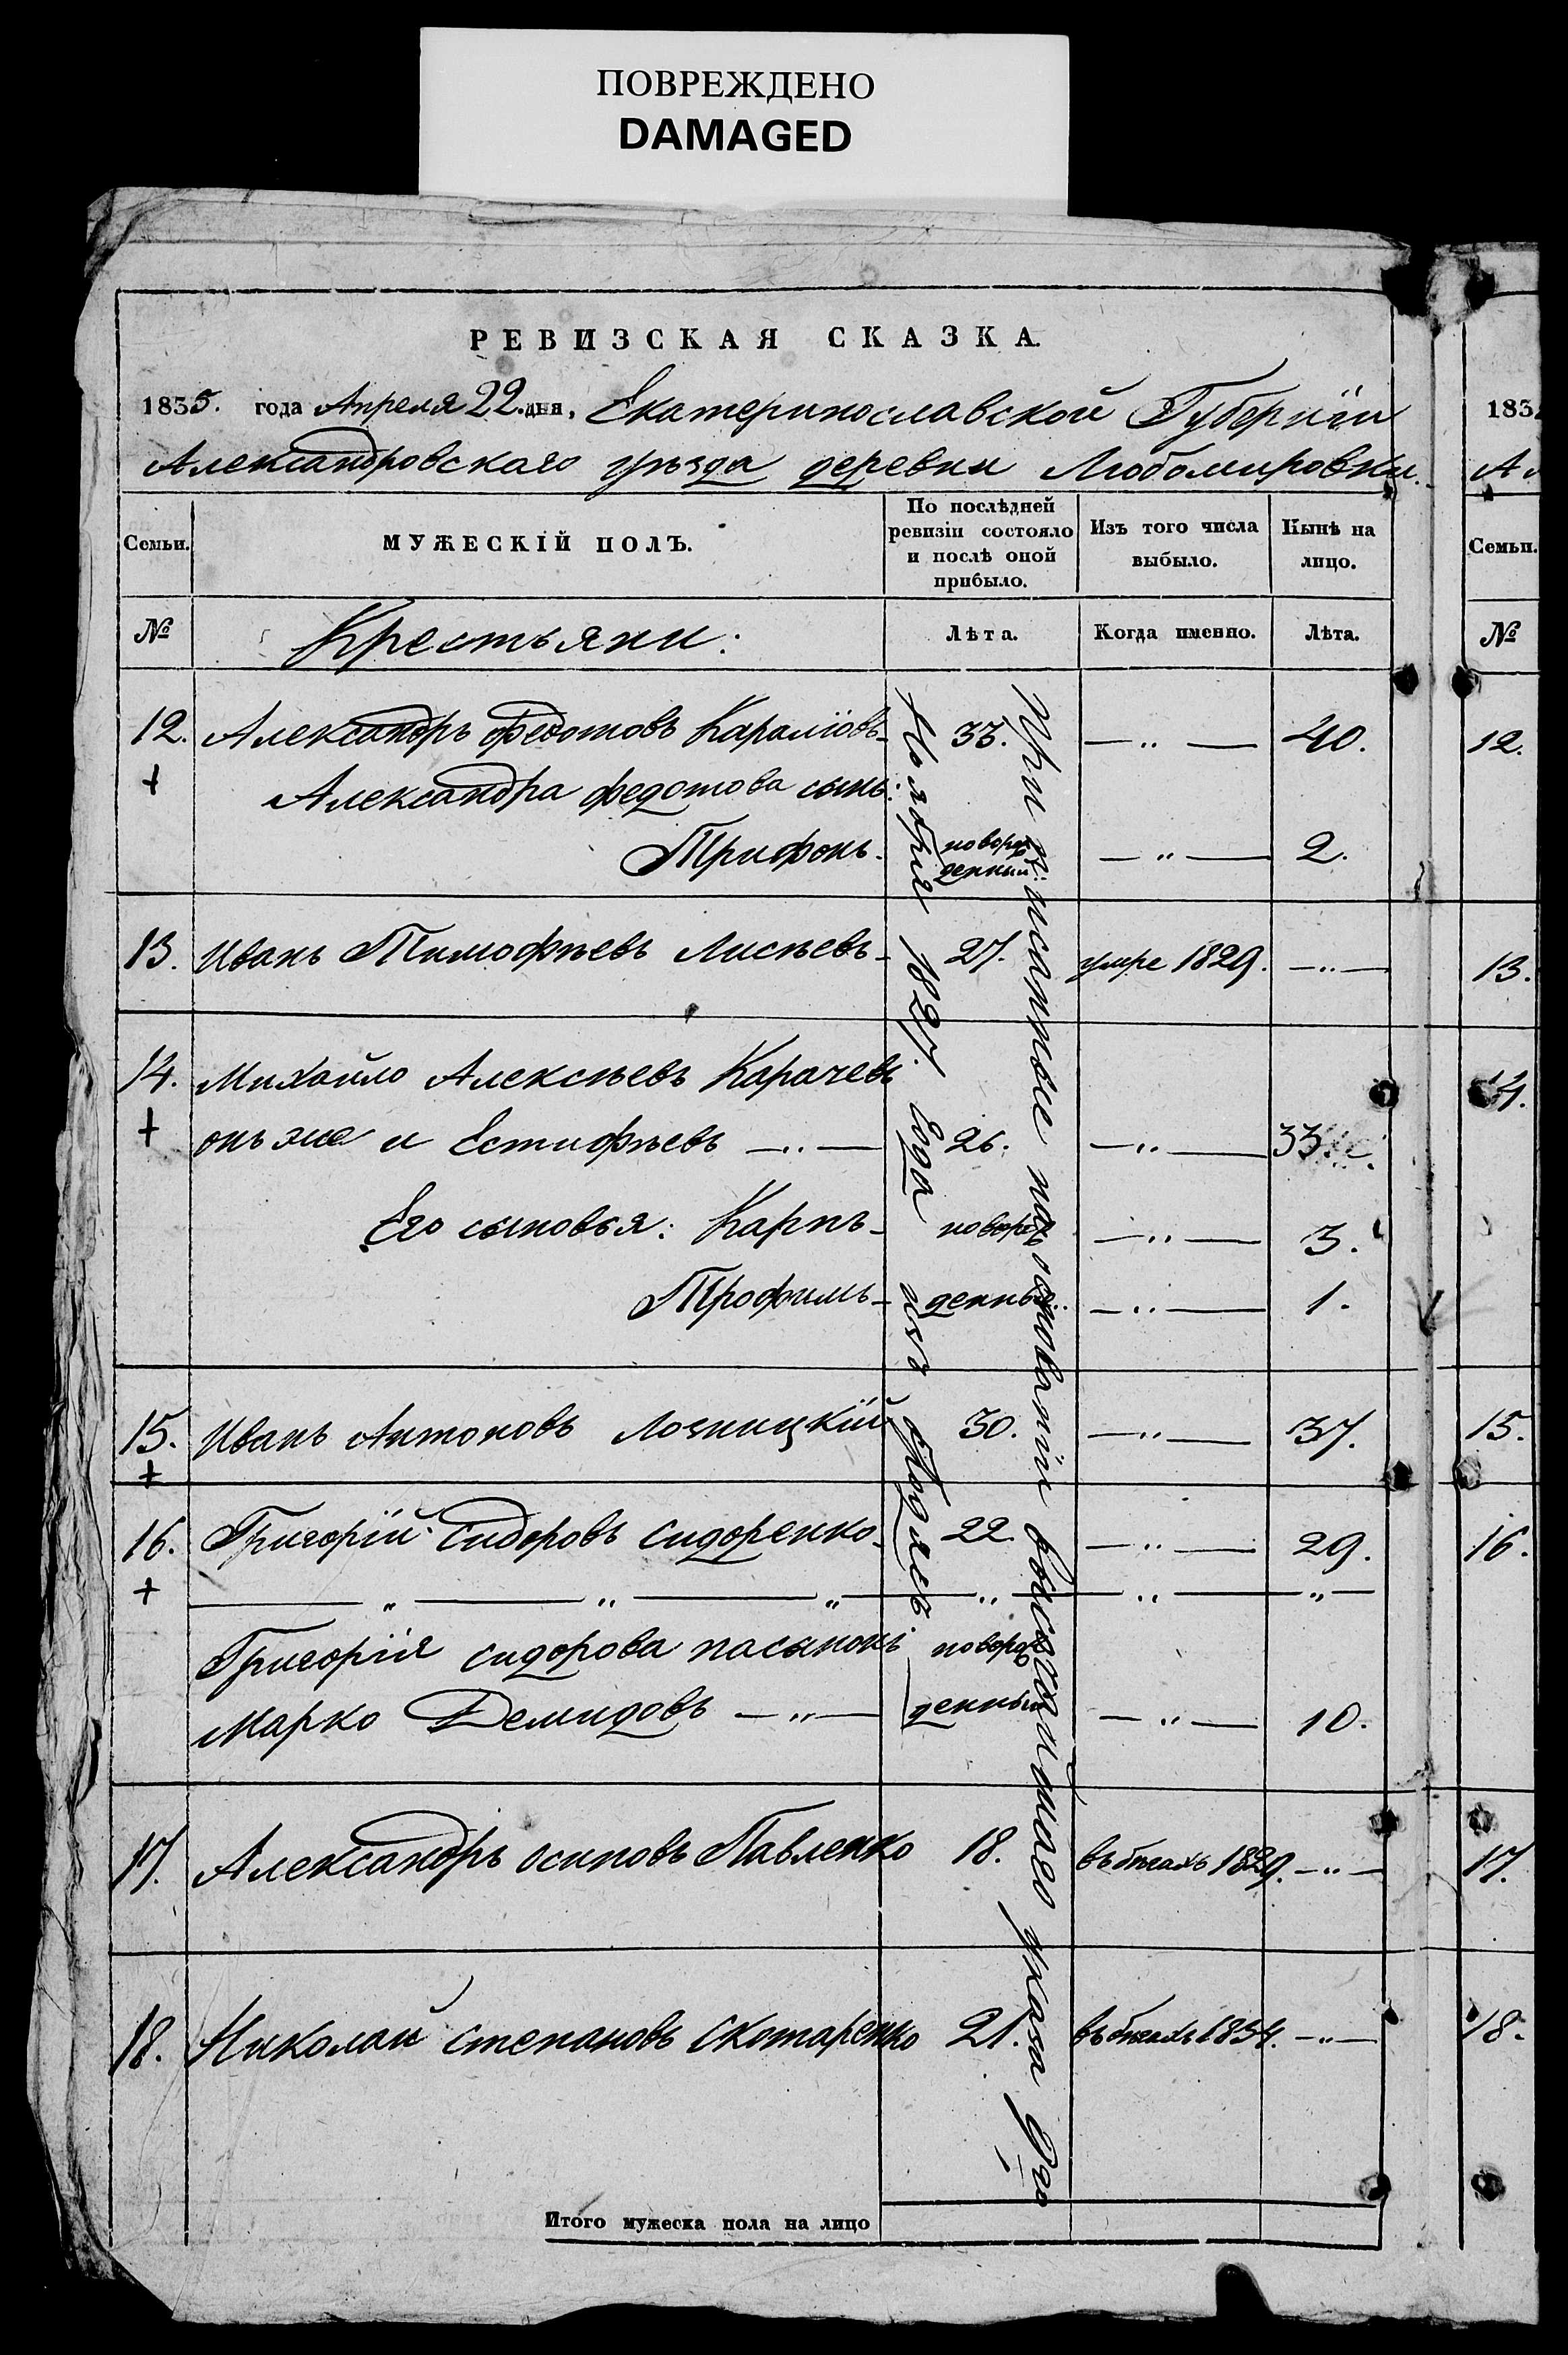 ПОВРЕЖДЕНО
DAMAGED
РЕВИЗСКАЯ СКАЗКА.
1835. года Апреля 22. дня, Екатеринославской Губерніи
Александровскаго уѣзда деревни Любомировки.
Семьи. МУЖЕСКІЙ ПОЛЪ. По послѣдней ревизіи состояло и послѣ оной прибыло. Изъ того числа выбыло. Нынѣ на лицо.
№ Крестьяни: Лѣта. Когда именно. Лѣта.
12. Александръ Федотовъ 33. — „ — 40.
Александра федотова сынъ:
Трифонъ. новорож денный — „ — 2.
13. Иванъ Тимофѣевъ Лисѣевъ 27. умре 1829. — „ —
14. Михайло Алексѣевъ Карачевъ
онъ же и Естифѣевъ — „ — 26. — „ — 33.
Его сыновья: Карпъ новорож — „ — 3.
Трофимъ денные — „ — 1.
15. Иванъ Антоновъ Лозницкій 30. — „ — 37.
16. Григорій Сидоровъ Сидоренко 22 — „ — 29.
— „ — „ — „ — „ — „ — „ —
Григорія сидорова пасынокъ новорож
Марко Демидовъ — „ — денный — „ — 10.
17. Александръ осиповъ Павленко 18. въ бѣгахъ 1829. — „ —
18. Николай степановъ скотаренко 21. въ бѣгахъ 1834. — „ —
Приписанные на основаніи высочайшаго указа 9го
Ноября 1827. года изъ бродягъ
Итого мужеска пола на лицо
183
Семьи.
№
12.
13.
14.
15.
16.
17.
18.